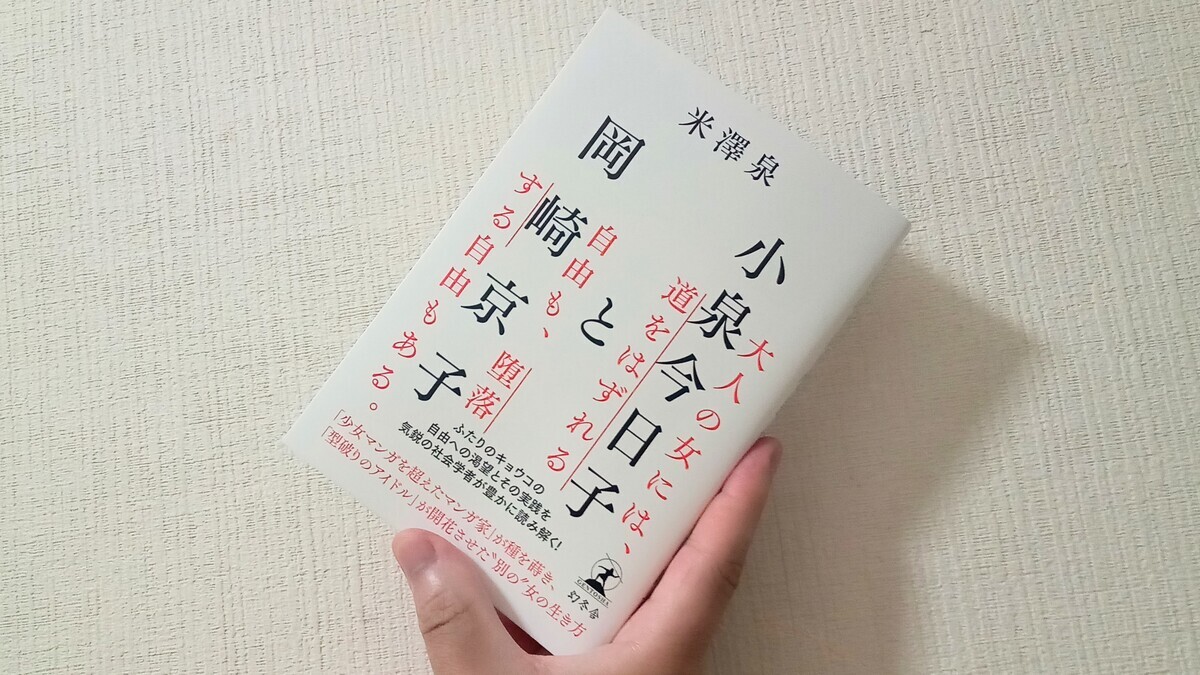 米澤泉
小泉今日子
と
岡崎京子
大人の女には、
道をはずれる
自由も、
堕落
する自由もある。
ふたりのキョウコの
自由への渇望とその実践を
気鋭の社会学者が豊かに読み解く!
「少女マンガを超えたマンガ家」が種を蒔き、
「型破りのアイドル」が開花させた〝別の〟女の生き方
GENTOSHA
幻冬舎